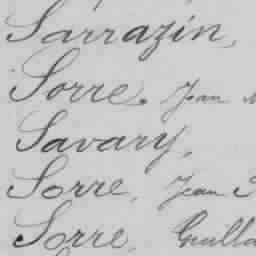 Sarrazin,
Sorre. Jean
Savary,
Sorre, Jean
Sorre,